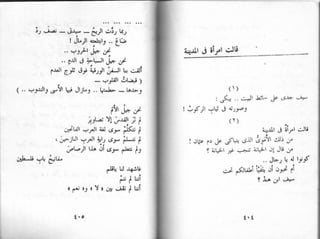 قالت امرأة في المدينة
(١)
سيف جدى على حائط البيت .. يبكى :
وصورته في ثياب الركوب !
(٢)
قالت امرأة في المدينة
من ذلك الأموى الذى يتباكى على دم عثمان !
من قال إن الخيانة تنجب غير الخيانة ؟
كونوا له يا رجال ..
أم تحبون أن يتفيأ أطفالكم تحت
سيف ابن هند ؟
٤٠٤
... ... ... ... ...
ربما ردت الريح – سيدتى – نصف رد
ضاع .. وابتلعته الرمال !
نحن جيل الحروب ..
نحن جيل السباحة في الدم ..
ألقت بنا السفن الورقية فوق ثلوج العدم
( قبضات القلوب –
وحدها – حطمتها .. ومازال فيها الأسى والندوب .. )
نحن جيل الألم
لم نر القدس إلا تصاوير
لم نتكلم سوى لغة العرب الفاتحين
لم نتسلم سوى راية العرب النازحين ،
ولم نتعلم سوى أن هذا الرصاص
مفاتيح باب فلسطين
فاشهد لنا يا قلم
أننا لم ننم
أننا لم نقف بين « لا » و « نعم »
٤٠٥